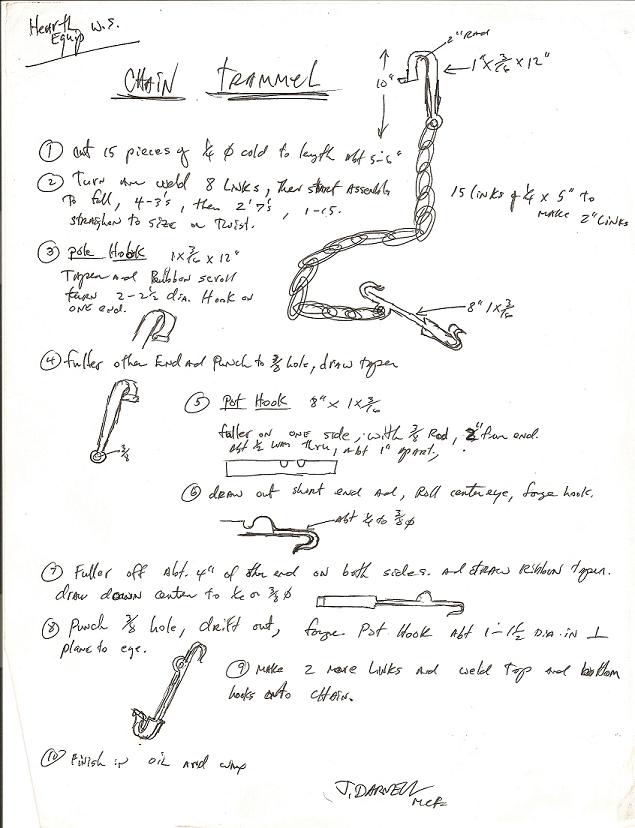 Hearth W.S.
Equip
CHAIN TRAMMEL
2" RAD
1" x 3/16 x 12"
10"
① Cut 15 pieces of 1/4 ⌀ cold to length Abt 5-
② Turn and weld 8 Links, then start Assembly
to full, 4-3's, then 2 7's, 1-15.
straighten to size or Twist.
15 links of 1/4 x 5" to
MAKE 2" Links
③ pole Hook 1 x 3/16 x 12"
Taper and Ribbon scroll
turn 2 - 2 1/2 dia. Hook on
ONE end.
8" 1 x 3/16
④ fuller other End and Punch to 3/8 hole, draw taper
3/8
⑤ Pot Hook 8" x 1 x 3/16
fuller on ONE side, with 3/8 Rod, 2" from end.
Abt 1/2 way thru, Abt 1" apart,
⑥ draw out short end and, Roll center eye, forge hook.
Abt 1/4 to 3/8 ⌀
⑦ Fuller off Abt. 4" of other end on both sides. And DRAW Ribbon taper.
draw down center to or 3/8 ⌀
⑧ Punch 3/8 hole, drift out, forge Pot Hook Abt 1 - 1 1/2 DIA. in ⊥
plane to eye.
⑨ MAKE 2 more Links and weld top and bottom
hooks onto CHAIN.
⑩ Finish in oil and wax
J. DARNELL